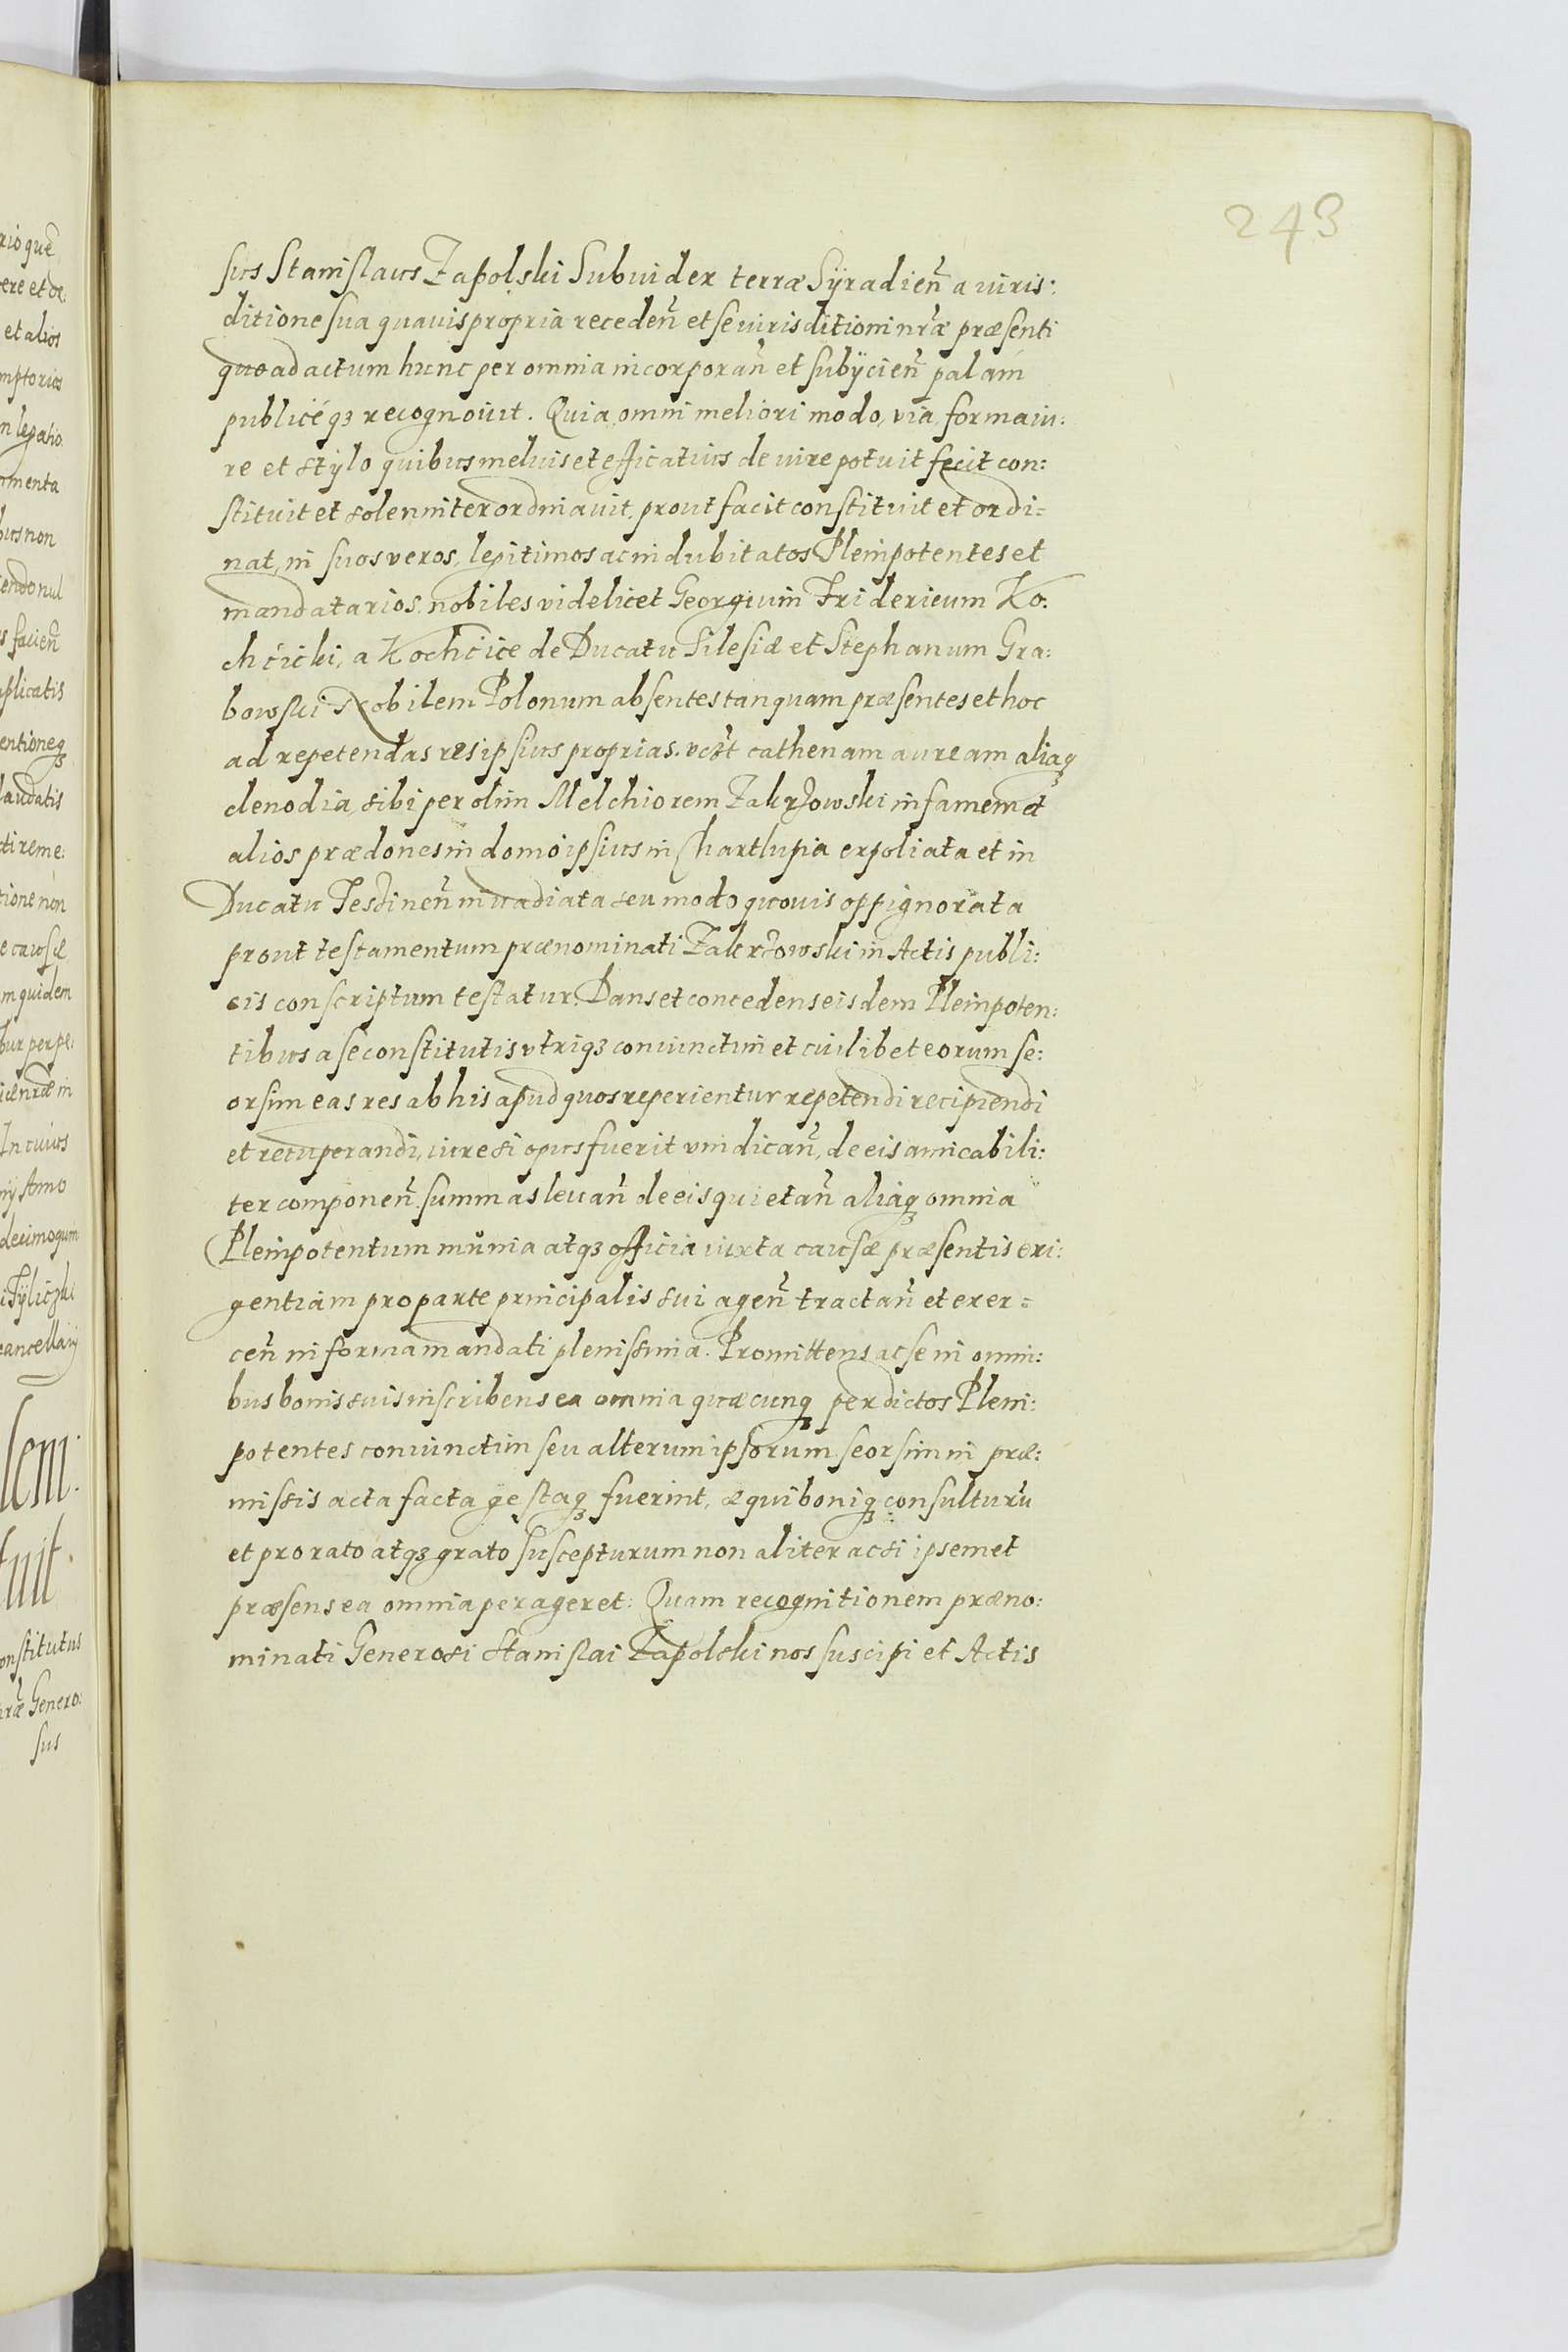 243
sus Stanislaus Zapolski Subiudex terræ Sÿradien̄ a iuris:
ditione sua quauis propria receden̄ et se iurisditioni nr̃æ præsenti
quo ad actum hunc per omnia incorporan̄ et subÿcien̄ palàm
publicéqꝫ recognouit. Quia omni meliori modo, via, forma iu:
re et stÿlo quibus melius et efficatius de iure potuit fecit con:
stituit et solenniter ordinauit, prout facit constituit et ordi=
nat, in suos veros, legitimos ac indubitatos Plenipotentes et
mandatarios, nobiles videlicet Georgium Fridericum Ko:
chcicki, a Kochcice de Ducatu Silesiæ et Stephanum Gra:
bowski Nobilem Polonum absentes tanquam præsentes et hoc
ad repetendas res ipsius proprias. vcꝫt cathenam auream aliaqꝫ
clenodia, sibi per olim Melchiorem Zakrzowski infamem et
alios prædones in domo ipsius in Chartlupia expoliata et in
Ducatu Tesdinen̄ inuadiata seu modo quouis oppignorata
prout testamentum prænominati Zakrzowski in Actis publi:
cis conscriptum testatur. Dans et concedens eisdem Plenipoten:
tibus a se constitutis vtriqꝫ coniunctim et cuilibet eorum se:
orsim eas res ab his apud quos reperientur repetendi recipiendi
et recuperandi, iure si opus fuerit vindican̄, de eis amicabili:
ter componen̄. summas leuan̄ de eis quietan̄ aliaqꝫ omnia
Plenipotentum munia atqꝫ officia iuxta causæ præsentis exi:
gentiam pro parte principalis sui agen̄ tractan̄ et exer=
cen̄ in forma mandati plenissima. Promittens ac se in omni:
bus bonis suis inscribens ea omnia quæcunqꝫ per dictos Pleni:
potentes coniunctim seu alterum ipsorum seorsim in præ:
missis acta facta gestaqꝫ fuerint, æqui boniqꝫ consulturū
et pro rato atqꝫ grato suscepturum non aliter ac si ipsemet
præsens ea omnia perageret: Quam recognitionem præno:
minati Generosi Stanislai Zapolski nos suscipi et Actis